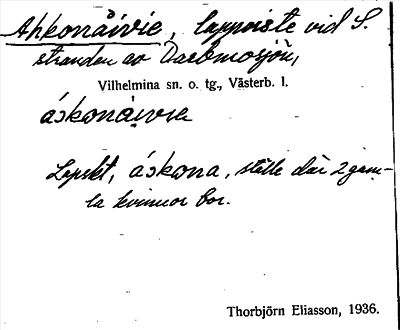 Ahkonåivie, lappviste vid S.
stranden av Daebmosjön,
Vilhelmina sn. o. tg., Västerb. l.
áɔkɷnåivıe
Lapskt, áɔkɷna, ställe där 2 gam-
la kvinnor bor.
Thorbjörn Eliasson, 1936.